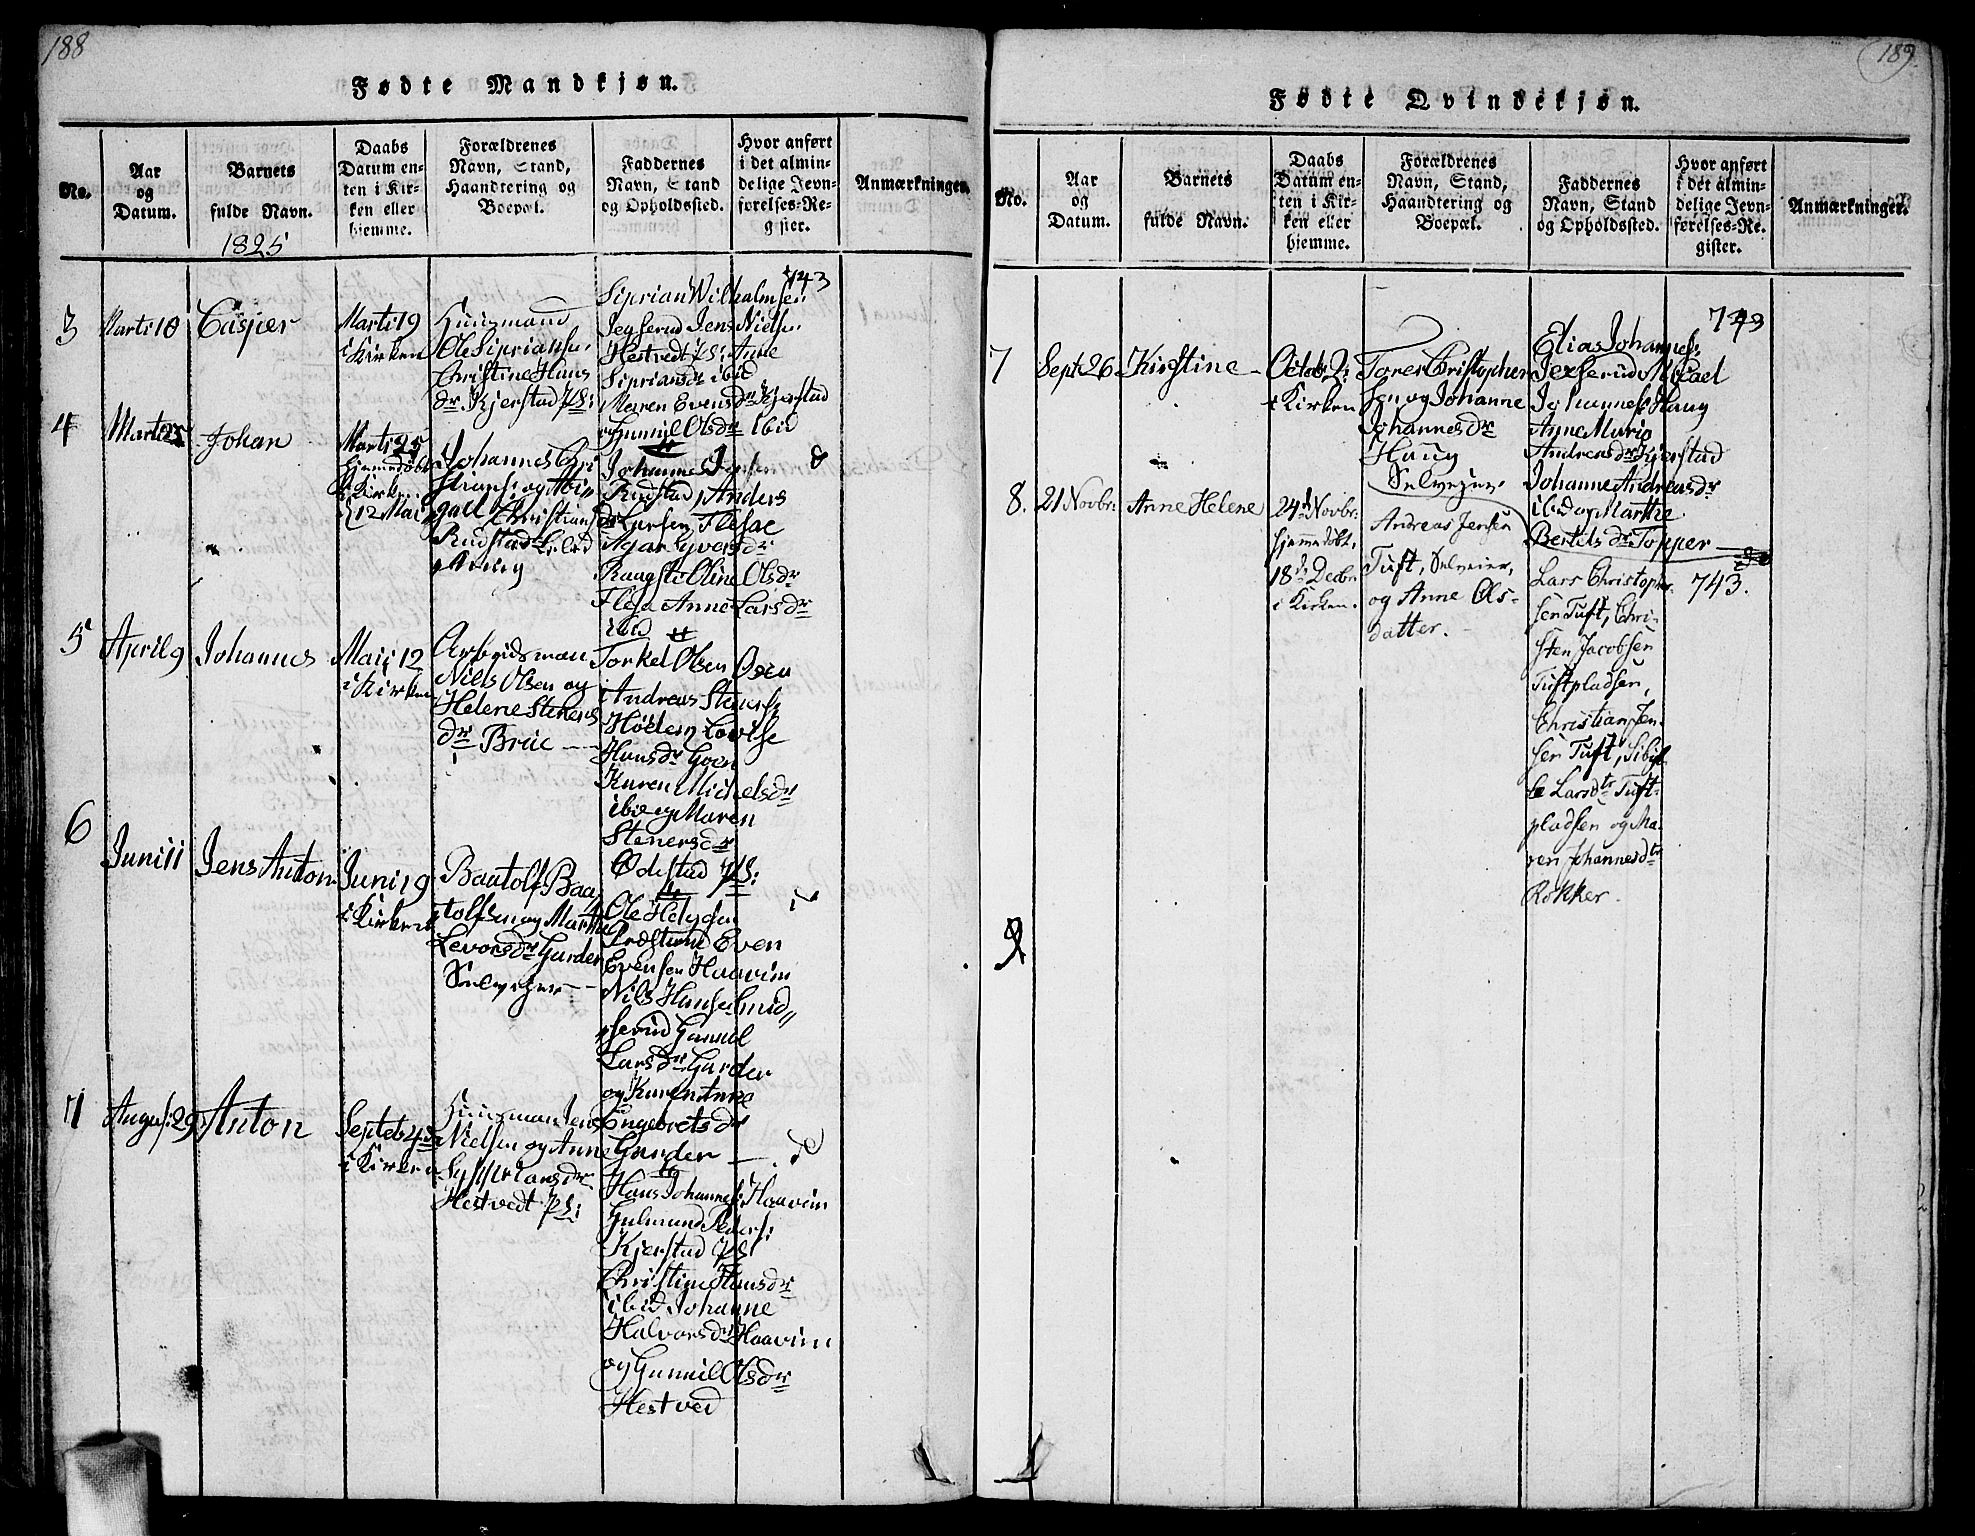 188
Fødte Mandkjøn.
No.
Aar
og
Datum.
Barnets
fulde Navn.
1825
Daabs
Datum en-
ten i Kir-
ken eller
hjemme.
Forældrenes
Navn, Stand,
Haandtering og
Boepæl.
Faddernes
Navn, Stand
og Opholdssted.
Hvor anført
i det almin-
delige Jevn-
førelses-Re-
gister.
Anmærkninger.
3
Marti 10
Casper
Marti 19
i Kirken
Huusmand
Ole Siprianse.
Christine Hans
dr Kjerstad Pl:
Siprian Wilhalmsen
Jegserud Jens Nielsen
Hestvedt Pl: Anne
Sipriansdr ibid
Maren Evensdr Kjerstad
og Gunnil Olsdr ibid
743
4
Marti 25
Johan
Marti 25
hjemedøbt
i Kirken
12 Mai
Johannes Chri
stians: og Abi
gael Christians
dr
Rudstad
Johannes
Rudstad, Anders
Larsen Flesae
Raagsti Oline Olsdr
Flesa Anne Larsdr
ibid
d
5
April 9
Johannes
Maii 12
i Kirken
Arbeidsman
Niels Olsen og
Helene Steners
dr Brue
Torkel Olsen Oien
Andreas Steners:
Lovise
Hansdr Goen
Karen Michelsdr
ibid og Maren
Stenersdr
Ødestad Pl:
6
Juni 11
Jens Anton
Juni 19
i Kirken
Bautolf Baa
tolfsen og Marthe
Levorsdr Garder
Selveier
Ole Helgesen
Præsterud Even
Evensen Haavim
Nils Hansen
serud Gunnil
Larsdr Garder
og Karen Anne
Engebretsdr
Garder
d
7
August 29
Anton
Septeb 4de
i Kirken
Huusman Jens
Nielsen og Anne
Sypriansdr
Hestvedt Pl:
Hans Johannes: Haavim
Gulmund Peders:
Kjerstad Pl:
Christine Hansdr
ibid Johanne
Halvorsdr Haavim
og Gunnil Olsdr
Hestved
d
189
Fødte Qvindekjøn.
No.
Aar
og
Datum.
Barnets
fulde Navn.
Daabs
Datum en-
ten i Kir-
ken eller
hjemme.
Forældrenes
Navn, Stand,
Haandtering og
Boepæl.
Faddernes
Navn, Stand
og Opholdssted.
Hvor anført
i det almin-
delige Jevn-
førelses-Re-
gister.
Anmærkninger.
7
Sept 26
Kirstine
Octob 2:
i Kirken
Tores Christopher
sen og Johanne
Johannesdr
Haug
Selveier
Elias Johannes:
Jexserud Micael
Johannes: Haug
Anne Maria
Andreasdr Kjerstad
Johanne Andreasdr
ibid og Marthe
Bertelsdr Topper
743
8.
21 Novbr:
Anne Helene
24d Novbr:
hjemedøbt,
18de Decbr.
i Kirken.
Andreas Jensen
Tuft, Selveier,
og Anne Ols-
datter.
Lars Christopher-
sen Tuft, Chri-
sten Jacobsen
Tuftpladsen,
Christian Jen-
sen Tuft, Sibyl-
le Larsdtr Tuft-
pladsen og Ma-
ren Johannesdtr
Rokker.
743.
9